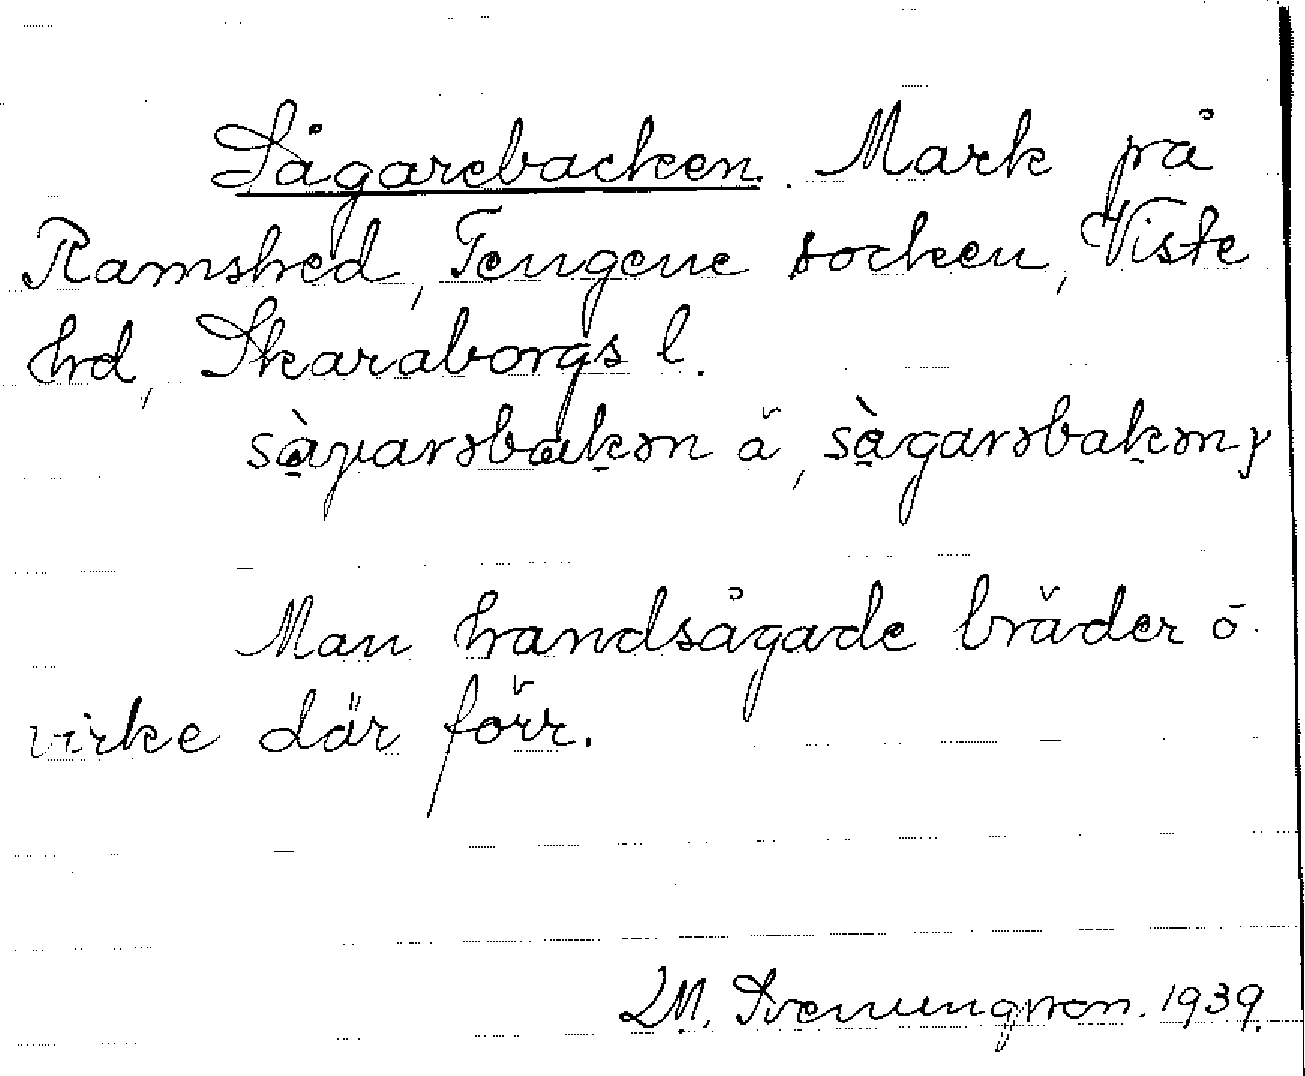 Sågarebacken. Mark på
Ramshed, Tengene socken, Viste
hrd, Skaraborgs l.
ä,
Man handsågade bräder ō
virke där förr.
LM. Svenungsson. 1939.